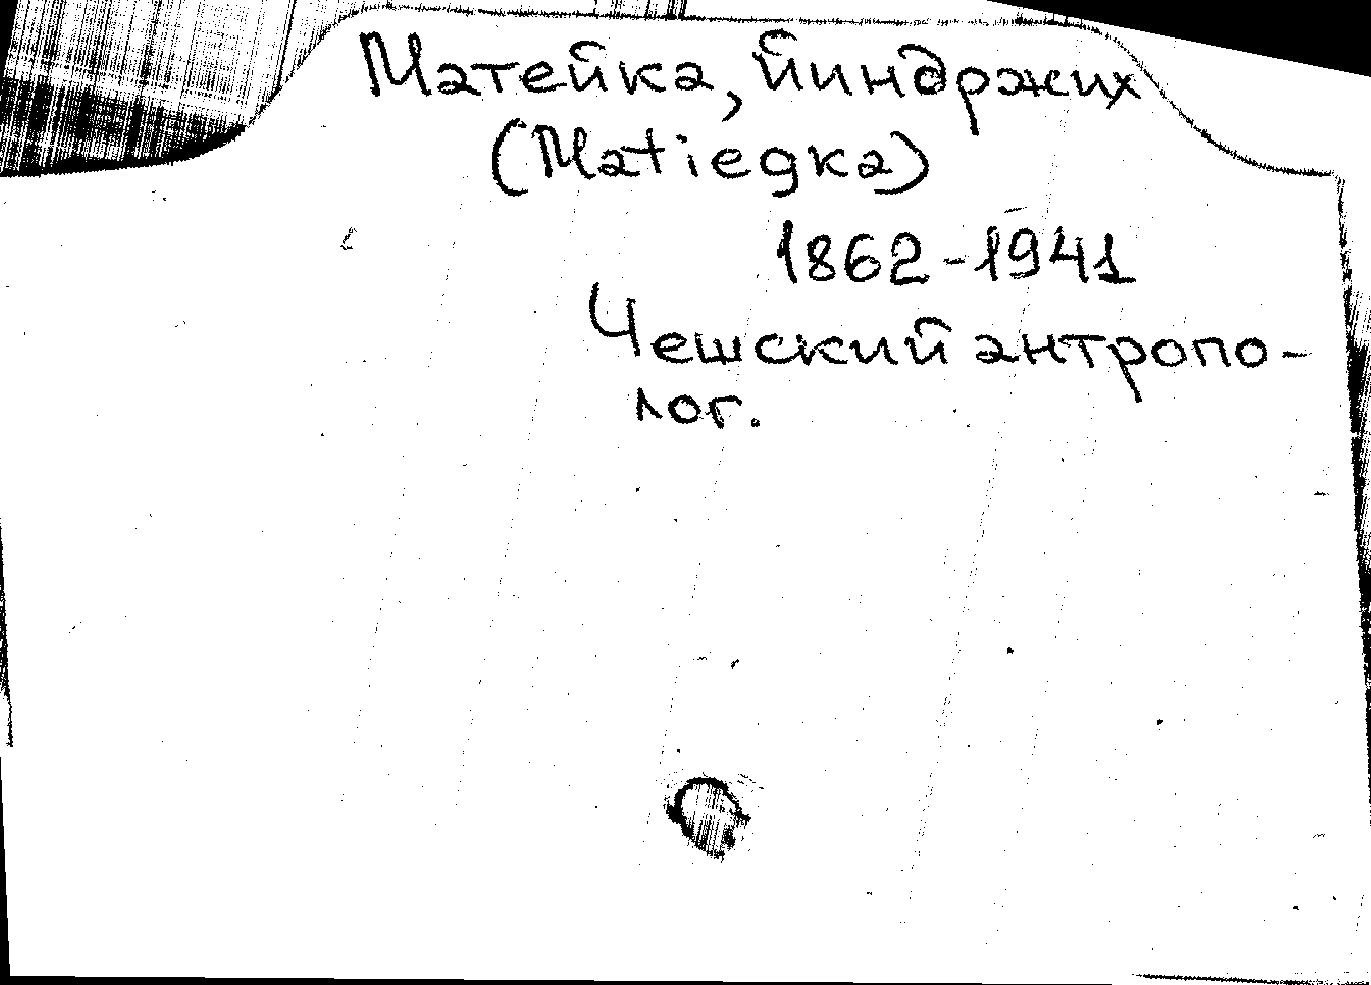 Матейка, Йиндржих
(Matiegka)
1862-1941
Чешский антропо-
лог.